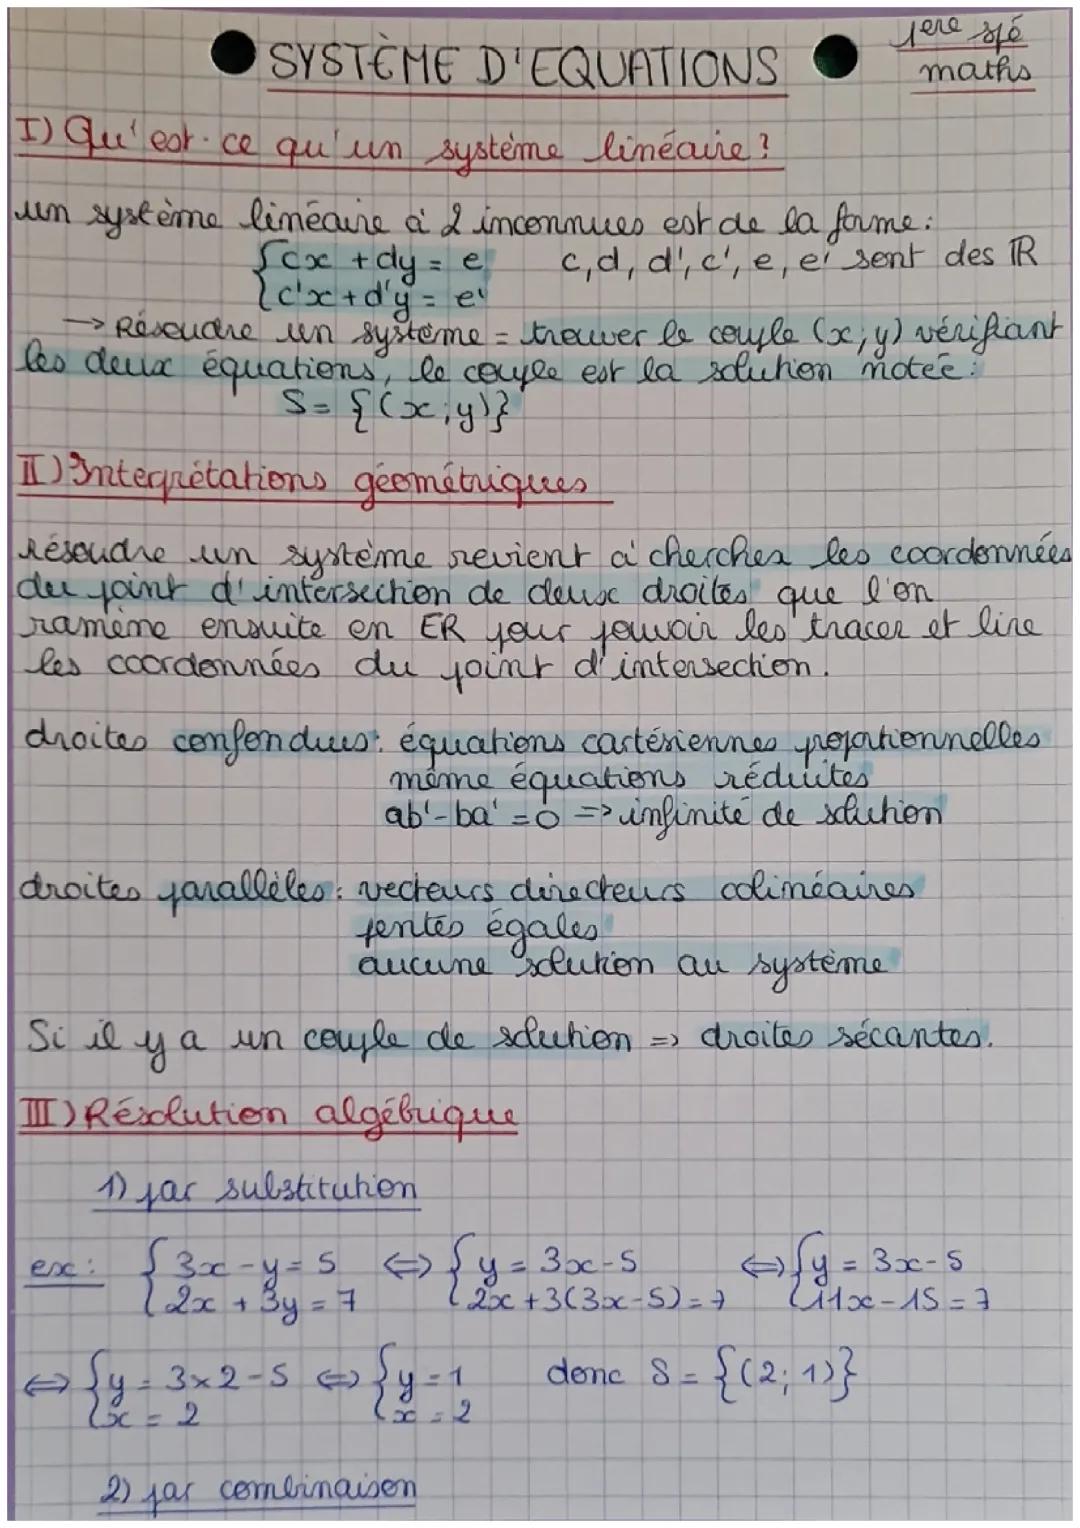 SYSTÈME D'EQUATIONS
1ere spé maths
I) Qu'est-ce qu'un système linéaire ?
un système linéaire à 2 inconnues est de la forme :
{ cx + dy = e     c, d, d', c', e, e' sont des ℝ
{ c'x + d'y = e'
→ Résoudre un système = trouver le couple (x; y) vérifiant
les deux équations, le couple est la solution notée :
S = {(x; y)}
II) Interprétations géométriques
résoudre un système revient à chercher les coordonnées
du point d'intersection de deux droites que l'on
ramène ensuite en ER pour pouvoir les tracer et lire
les coordonnées du point d'intersection.
droites confondues : équations cartésiennes proportionnelles
même équations réduites
ab' - ba' = 0 => infinité de solution
droites parallèles : vecteurs directeurs colinéaires
pentes égales
aucune solution au système
Si il y a un couple de solution => droites sécantes.
III) Résolution algébrique
1) par substitution
ex : { 3x - y = 5 ⇔ { y = 3x - 5 ⇔ { y = 3x - 5
{ 2x + 3y = 7 { 2x + 3(3x - 5) = 7 { 11x - 15 = 7
⇔ { y = 3×2 - 5 ⇔ { y = 1 donc S = {(2; 1)}
{ x = 2 { x = 2
2) par combinaison